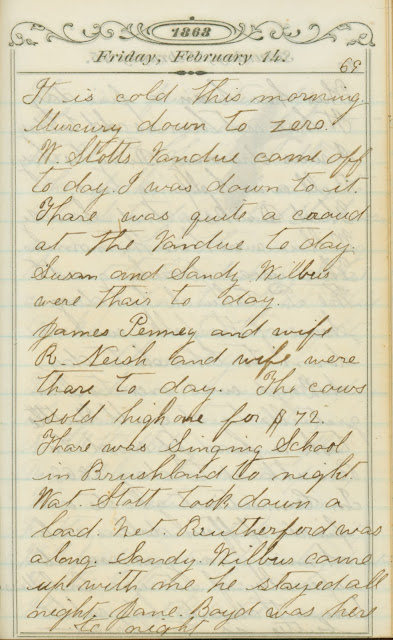 1868
Friday, February 14.
69
It is cold this morning.
Mercury down to zero.
W. Stotts Vandue came off
to day. I was down to it.
Thare was quite a croud
at the Vandue to day.
Susan and Sandy Wilbus
were thair to day.
James Penney and wife
R. Neish and wife were
thare to day. The cows
sold high one for $72.
Thare was Singing School
in Brushland to night.
Wat. Stott took down a
load. Net. Rutherford was
along. Sandy Wilbus came
up with me he stayed all
night. Jane Boyd was here
to night